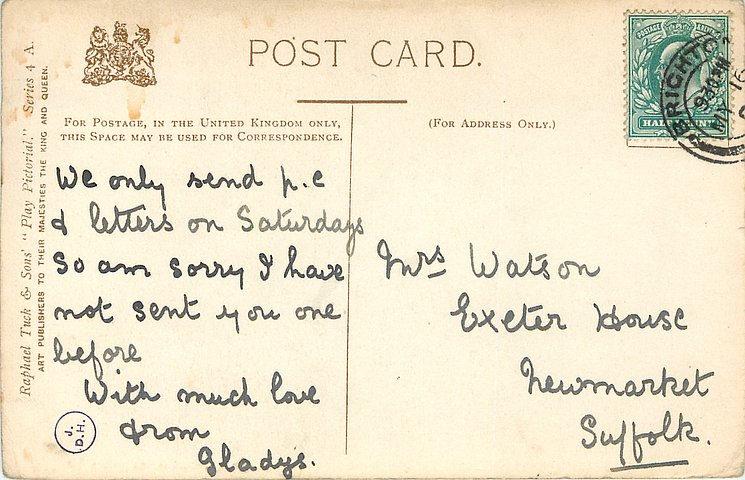 POST CARD.
FOR POSTAGE, IN THE UNITED KINGDOM ONLY,
THIS SPACE MAY BE USED FOR CORRESPONDENCE.
(FOR ADDRESS ONLY.)
Raphael Tuck & Sons' "Play Pictorial." Series 4 A.
ART PUBLISHERS TO THEIR MAJESTIES THE KING AND QUEEN.
We only send p.c
& letters on Saturdays
So am sorry I have
not sent you one
before
With much love
from
Gladys.
J.
D.H.
Mrs Watson
Exeter House
Newmarket
Suffolk.
POSTAGE
HALF
BRIGHTO
9 30 AM
MY 16